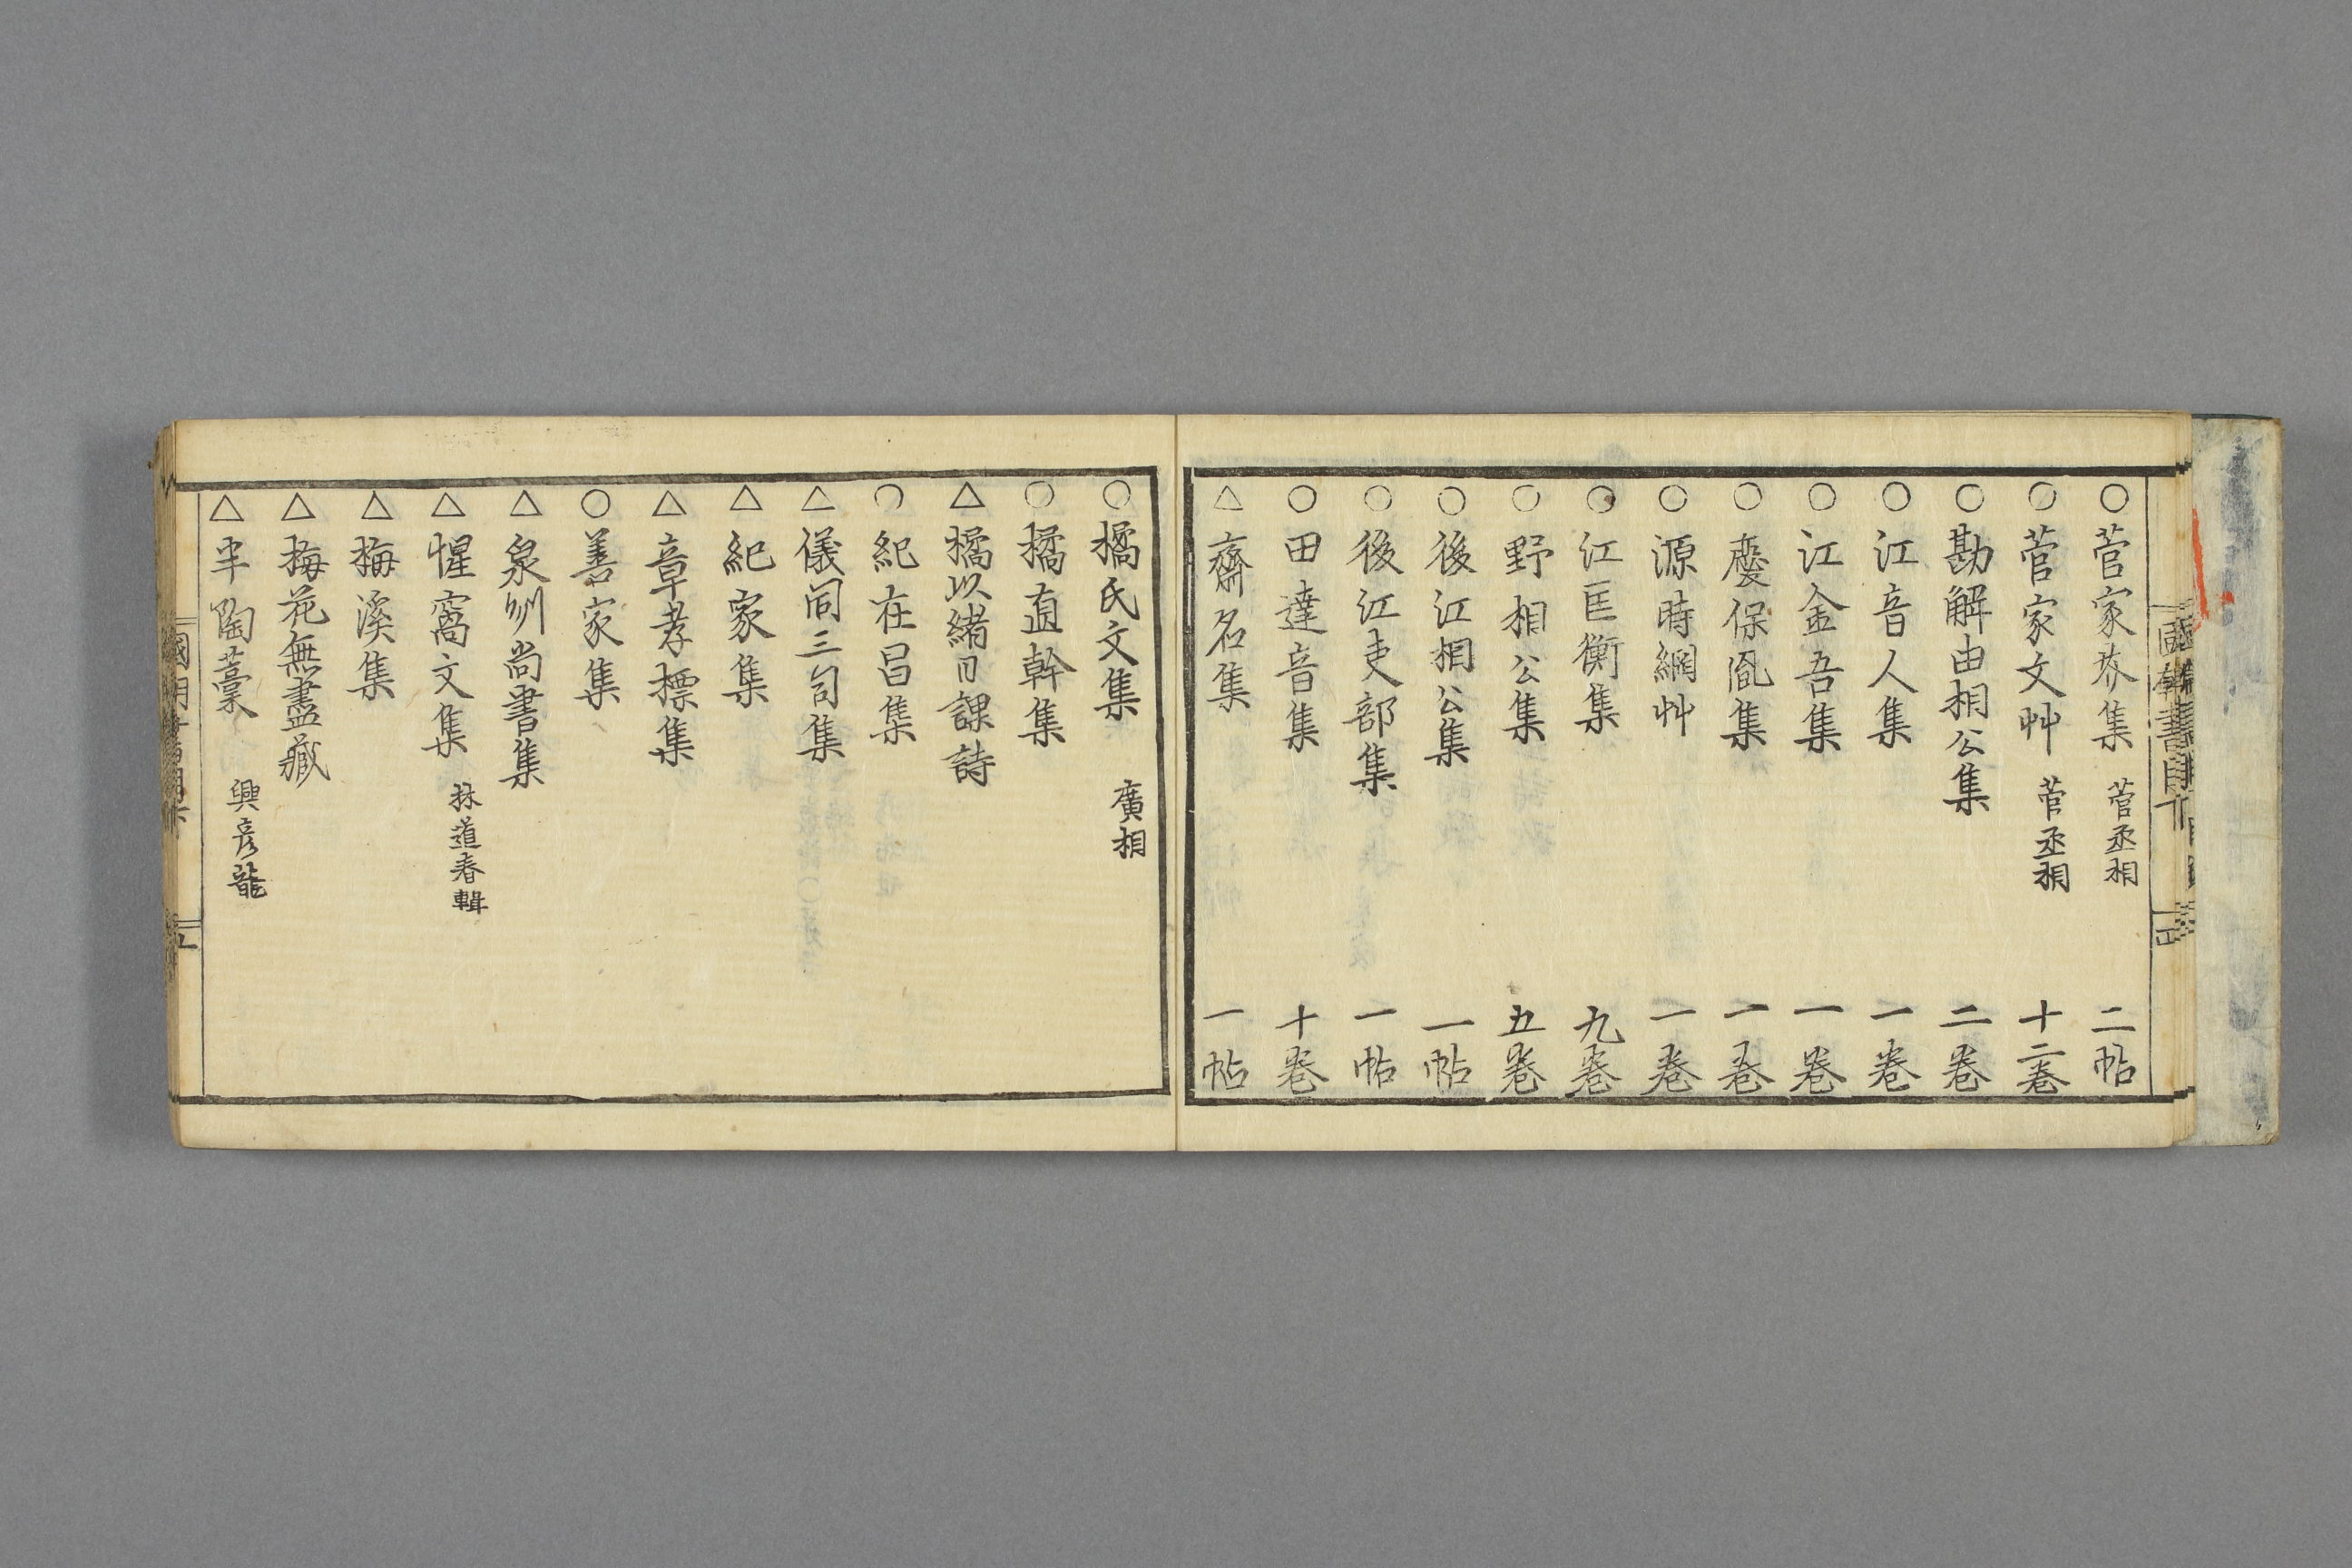 ○菅家芥集 菅丞相 二帖
○菅家文艸 菅丞相 十二卷
○勘解由相公集 二卷
○江音人集 一卷
○江金吾集 一卷
○慶保胤集 一卷
○源時綱艸 一卷
○江匡衡集 九卷
○野相公集 五卷
○後江相公集 一帖
○後江吏部集 一帖
○田達音集 十卷
△齋名集 一帖
○橘氏文集 廣相
○橘直幹集
△橘以緒日課詩
○紀在昌集
△儀同三司集
△紀家集
△章孝標集
○善家集
△泉州尚書集
△惺窩文集 林道春輯
△梅溪集
△梅花無盡藏
△半陶藁 興彦龍